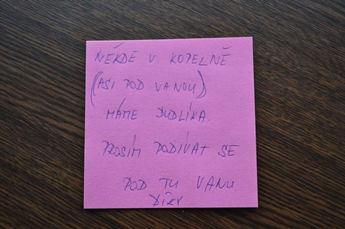 NĚKDE V KOPELNĚ
(ASI POD VANOU)
MÁME DUDLÍKA.
PROSÍM PODÍVAT SE
POD TU VANU
DÍKY